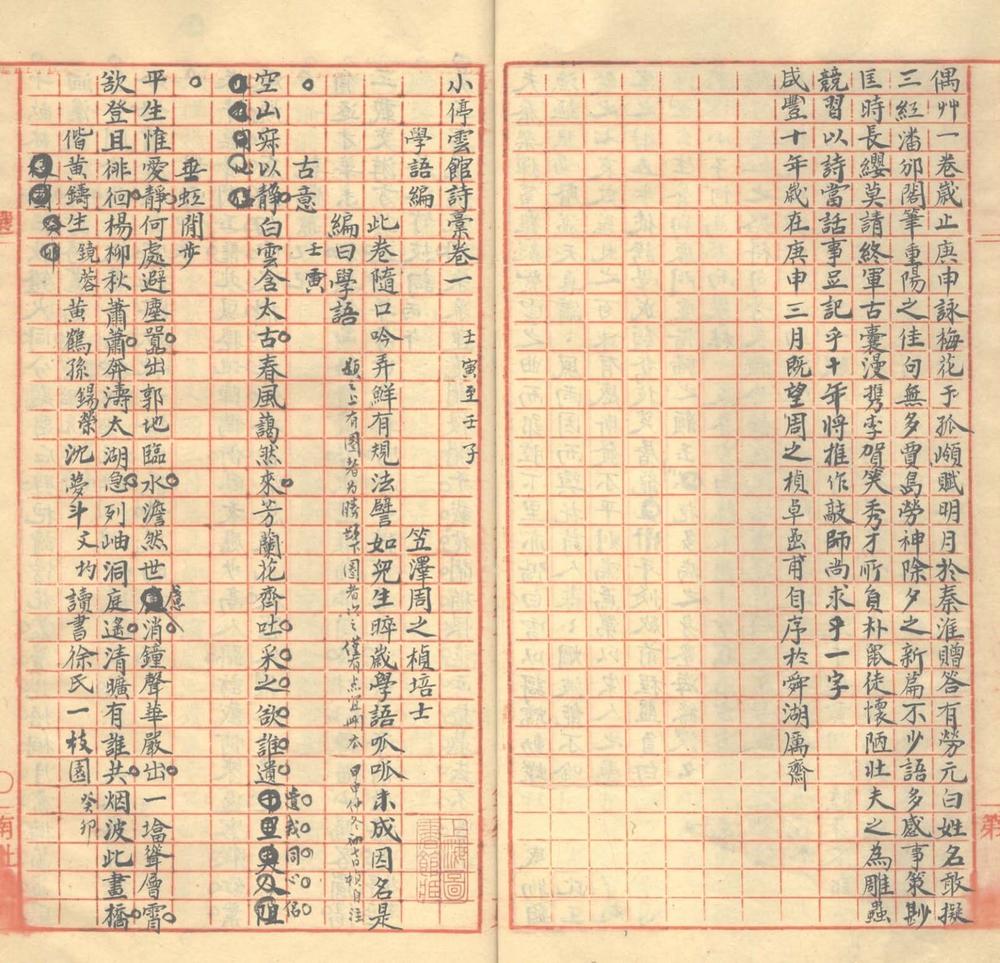 偶艸一卷歲止庚申詠梅花于孤嶼賦明月於秦淮贈答有勞元白姓名敢擬
三紅潘邠閣筆重陽之佳句無多賈島勞神除夕之新篇不少語多感事策尠
匡時長纓莫請終軍古囊漫携李賀笑秀才所負朴鼠徒懷陋壯夫之為雕蟲
競習以詩當話事豆記乎十年將推作敲師尚求乎一字
咸豐十年歲在庚申三月既望周之楨卓函甫自序於舜湖厲齋
小停雲館詩藁卷一 壬寅至壬子
學語編 笠澤周之楨培士
此卷隨口吟弄鮮有規法譬如兒生晬歲學語呱呱未成因名是
編曰學語 題之上有圈者為勝題下圈者次之僅有點宜冊本 甲申仲冬初十日楨自注
古意 壬寅
空山寀以靜白雲含太古春風藹然來芳蘭花齊吐采之欲誰遺
遺我同心侶
垂虹閒步
平生惟愛靜何處避塵囂出郭地臨水澹然世慮消鐘聲華嚴出一塔聳層霄
欲登且徘徊楊柳秋蕭蕭奔濤太湖急列岫洞庭遙清曠有誰共烟波此畫橋
偕黃鑄生鏡蓉黃鶴孫錫榮沈夢斗文杓讀書徐氏一枝園 癸卯